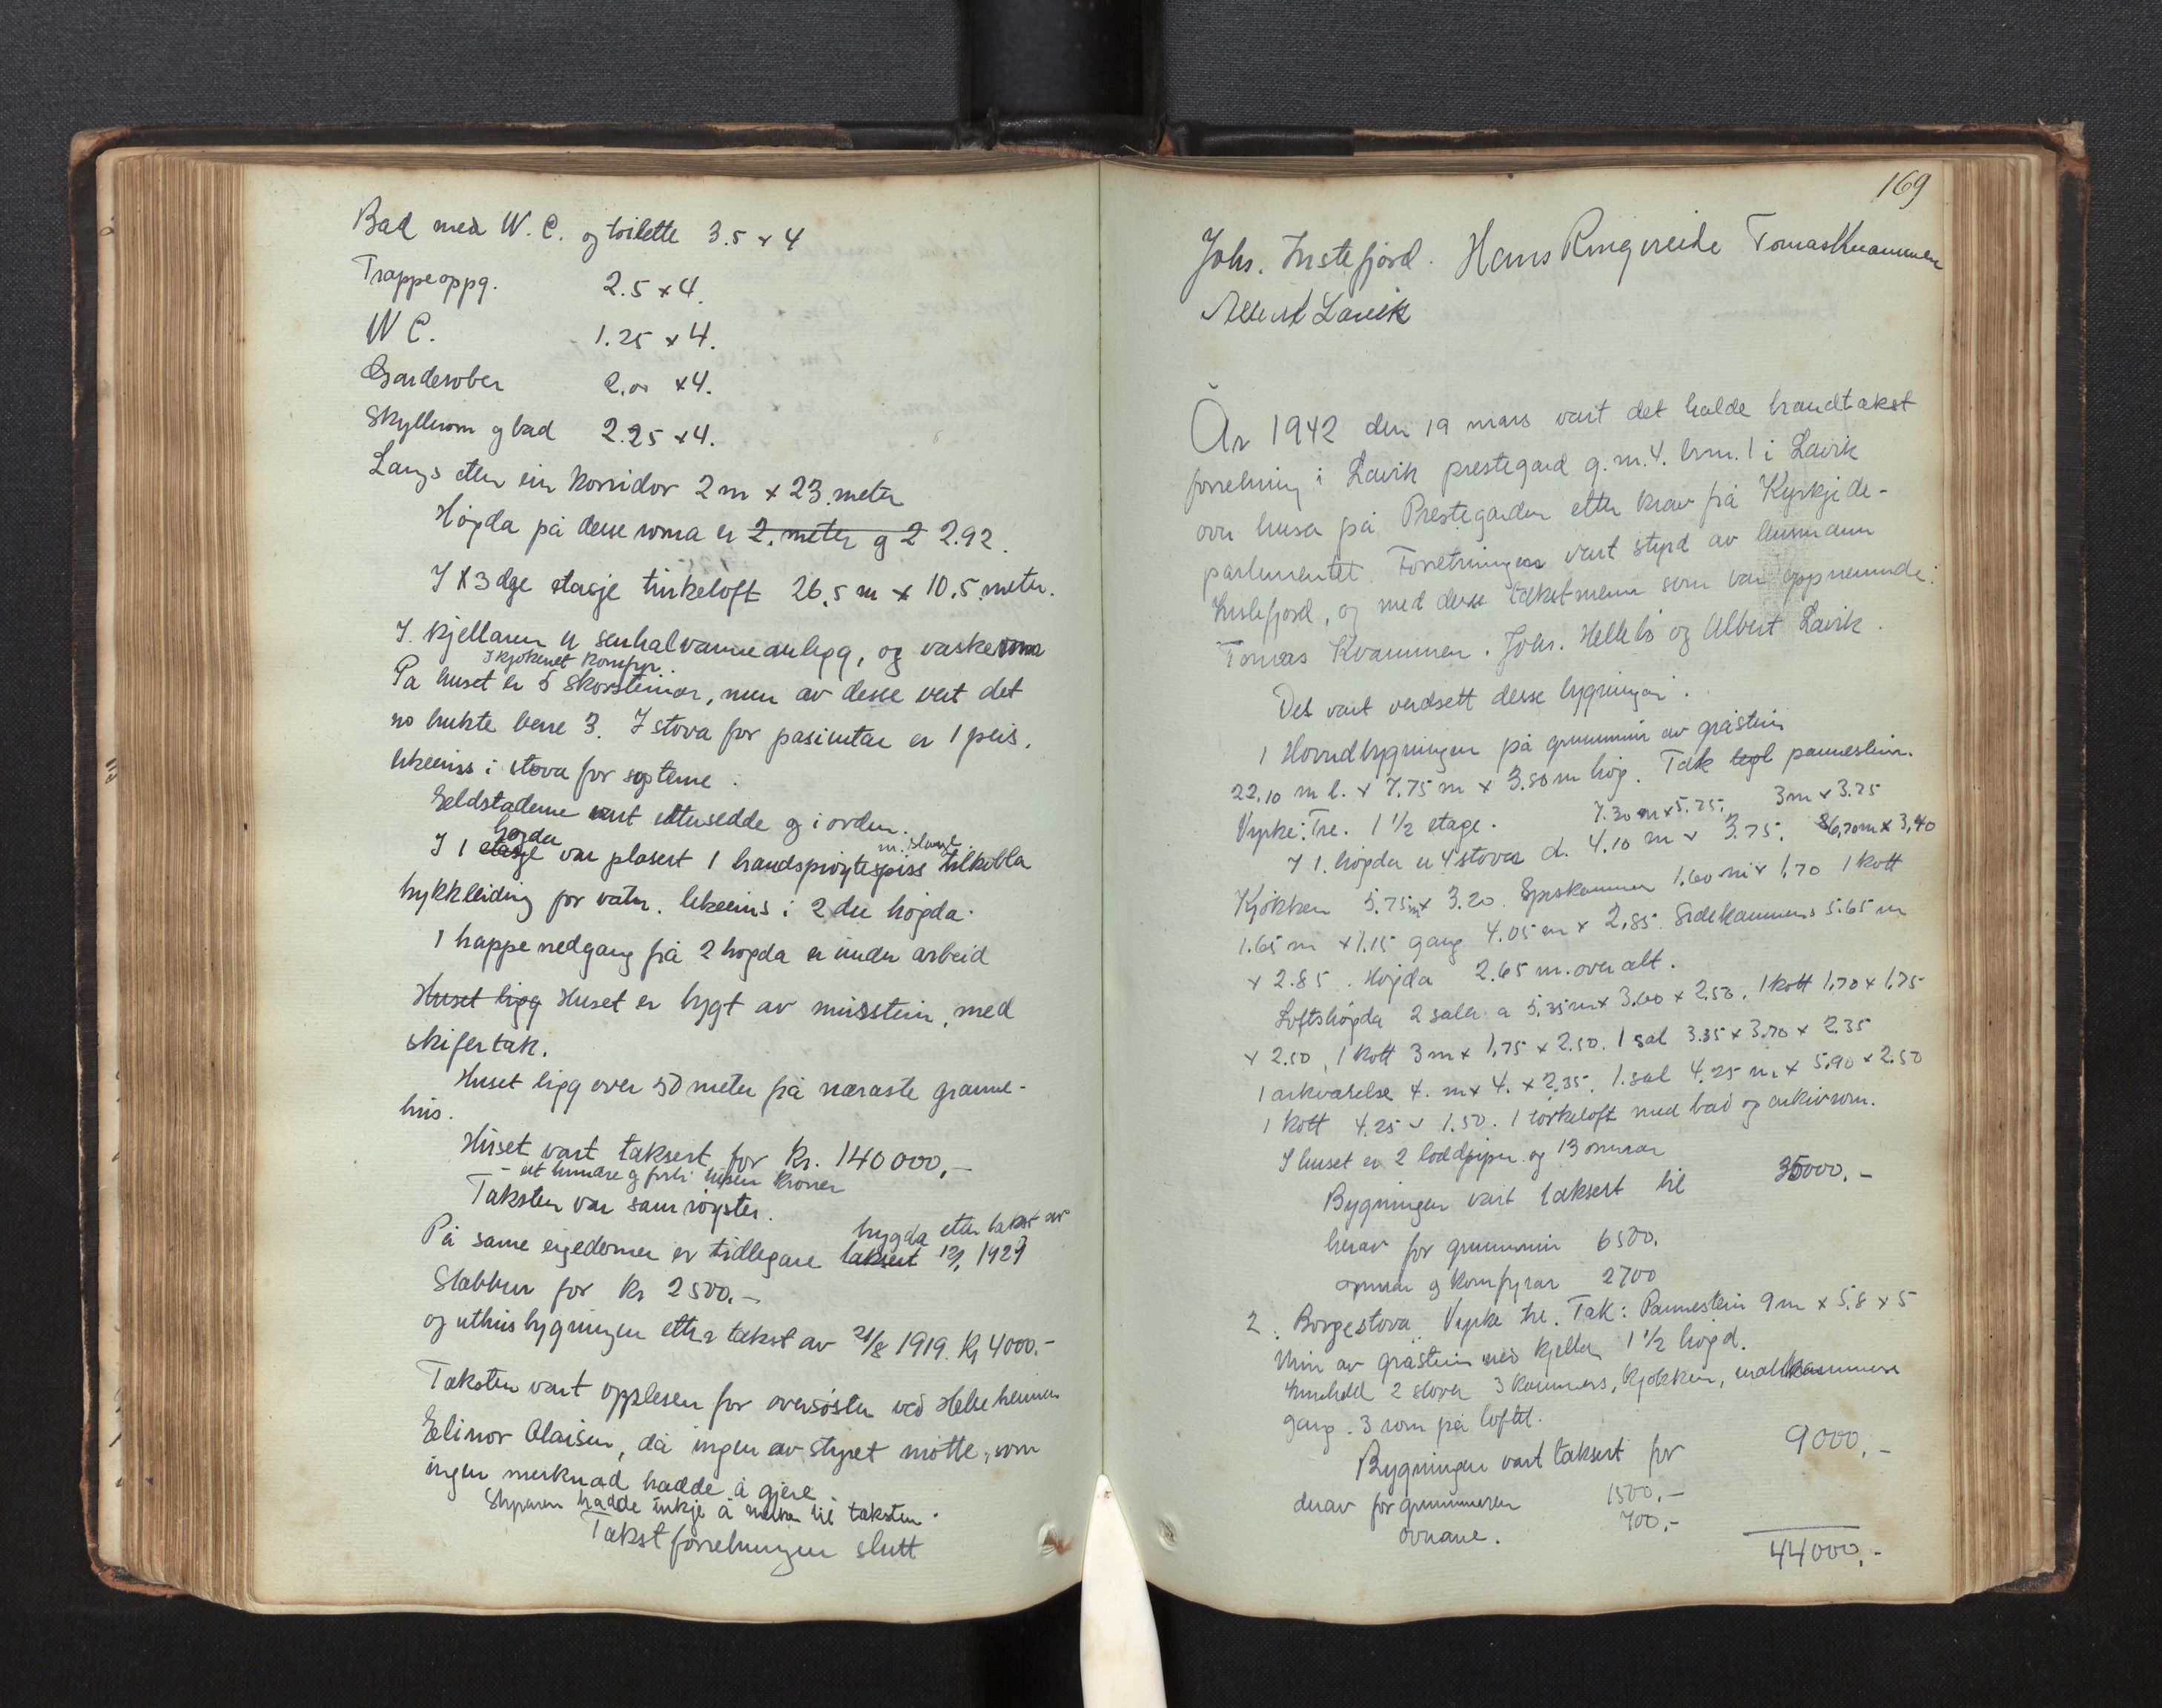 Bad med W.C. og toilette 3.5 x 4
Trappeoppg. 2.5 x 4.
W C. 1.25 x 4.
Garderober 2.00 x 4.
Skyllerom og bad 2.25 x 4.
Langs etter ein korridor 2 m x 23. meter
Høgda på desse roma er 2. meter og 2 2.92.
I 3dge etasje turkeloft 26.5 m x 10.5 meter.
I kjellaren er senhalvarmeanlegg, og vaskerom
I kjøkenet komfyr.
På huset er 5 skorsteinar, men av desse vert det
no brukte berre 3. I stova for pasientar er 1 peis,
likeeins i stova for systerne.
Eeldstaderne vart ettersedde og i orden.
høgda m. slange
I 1 etasje var plasert 1 brandsprøytespiss tilkobla
trykkleiding for vatn. likeeins i 2dre høgda.
1 trappe nedgang frå 2 høgda er under arbeid
Huset ligg Huset er bygt av murstein, med
skifertak.
Huset ligg over 50 meter frå næraste granne-
hus.
Huset vart taksert for kr. 140000,-
- eit hundre og førti tusen kroner
Taksten var samrøystes.
bygda etter takst av
På same eigedomen er tidlegare taksert 12/1 1929
Stabbur for kr 2500.-
og uthusbygningen etter takst av 21/8 1919. Kr 4000.-
Taksten vart opplesen for oversøster ved Helseheimen
Elinor Olaisen, då ingen av styret møtte, som
ingen merknad hadde å gjere.
Styraren hadde inkje å merka til taksten.
Takstforretningen slutt
169
Johs. Instefjord. Hans Ringereide Tomas Kvammen
Albert Lavik
År 1942 den 19 mars vart det halde brandtakst
forretning i Lavik prestegard g.nr.4. brnr.1 i Lavik
over husa på Prestegarden etter krav frå Kyrkjede-
partementet. Forretningen vart styrd av lensmann
Instefjord, og med desse takstmenn som var oppnemnde:
Tomas Kvammen. Johs. Hellebø og Albert Lavik.
Det vart verdsett desse bygningar.
1 Hovudbygningen på grunnmur av gråstein
22.10 m l. x 7.75 m x 3.80 m høg. Tak tegl pannestein.
Vyrke: Tre. 1 1/2 etage. 7.30 m x 5.75, 3 m x 3.75
I 1. høgda er 4 stover d. 4.10 m x 3.75. 6,70m x 3,40
Kjøkken 5.75m x 3.20. Spiskammer 1.60 m x 1.70 1 kott
1.65 m x 1.15 gang 4.05 m x 2.85. Sidekammers 5.65 m
x 2.85. Høgda 2.65 m. over alt.
Loftshøgda 2 saler a 5.35m x 3.60 x 2.50. 1 kott 1.70 x 1.75
x 2.50, 1 kott 3 m x 1.75 x 2.50. 1 sal 3.35 x 3.70 x 2.35
1 arkværelse 4. m x 4. x 2.35. 1. sal 4.25 m x 5.90 x 2.50
1 kott 4.25 x 1.50. 1 tørkeloft med bad og arkivrom.
I huset er 2 loddpiper og 13 omnar
Bygningen vart taksert til 35000.-
herav for grunnmur 6500.
omnar og komfyrar 2700
2. Borgestova. Vyrke tre. Tak: Pannestein 9 m x 5.8 x 5
Mur av gråstein med kjellar 1 1/2 høgd.
Innehald 2 stover 3 kammers, kjøkken, matkammers
gang. 3 rom på loftet.
Bygningen vart taksert for 9000.-
derav for grunnmuren 1500.-
ovnane. 700.-
44000.-